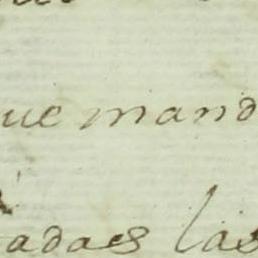 ue mand
adaes las